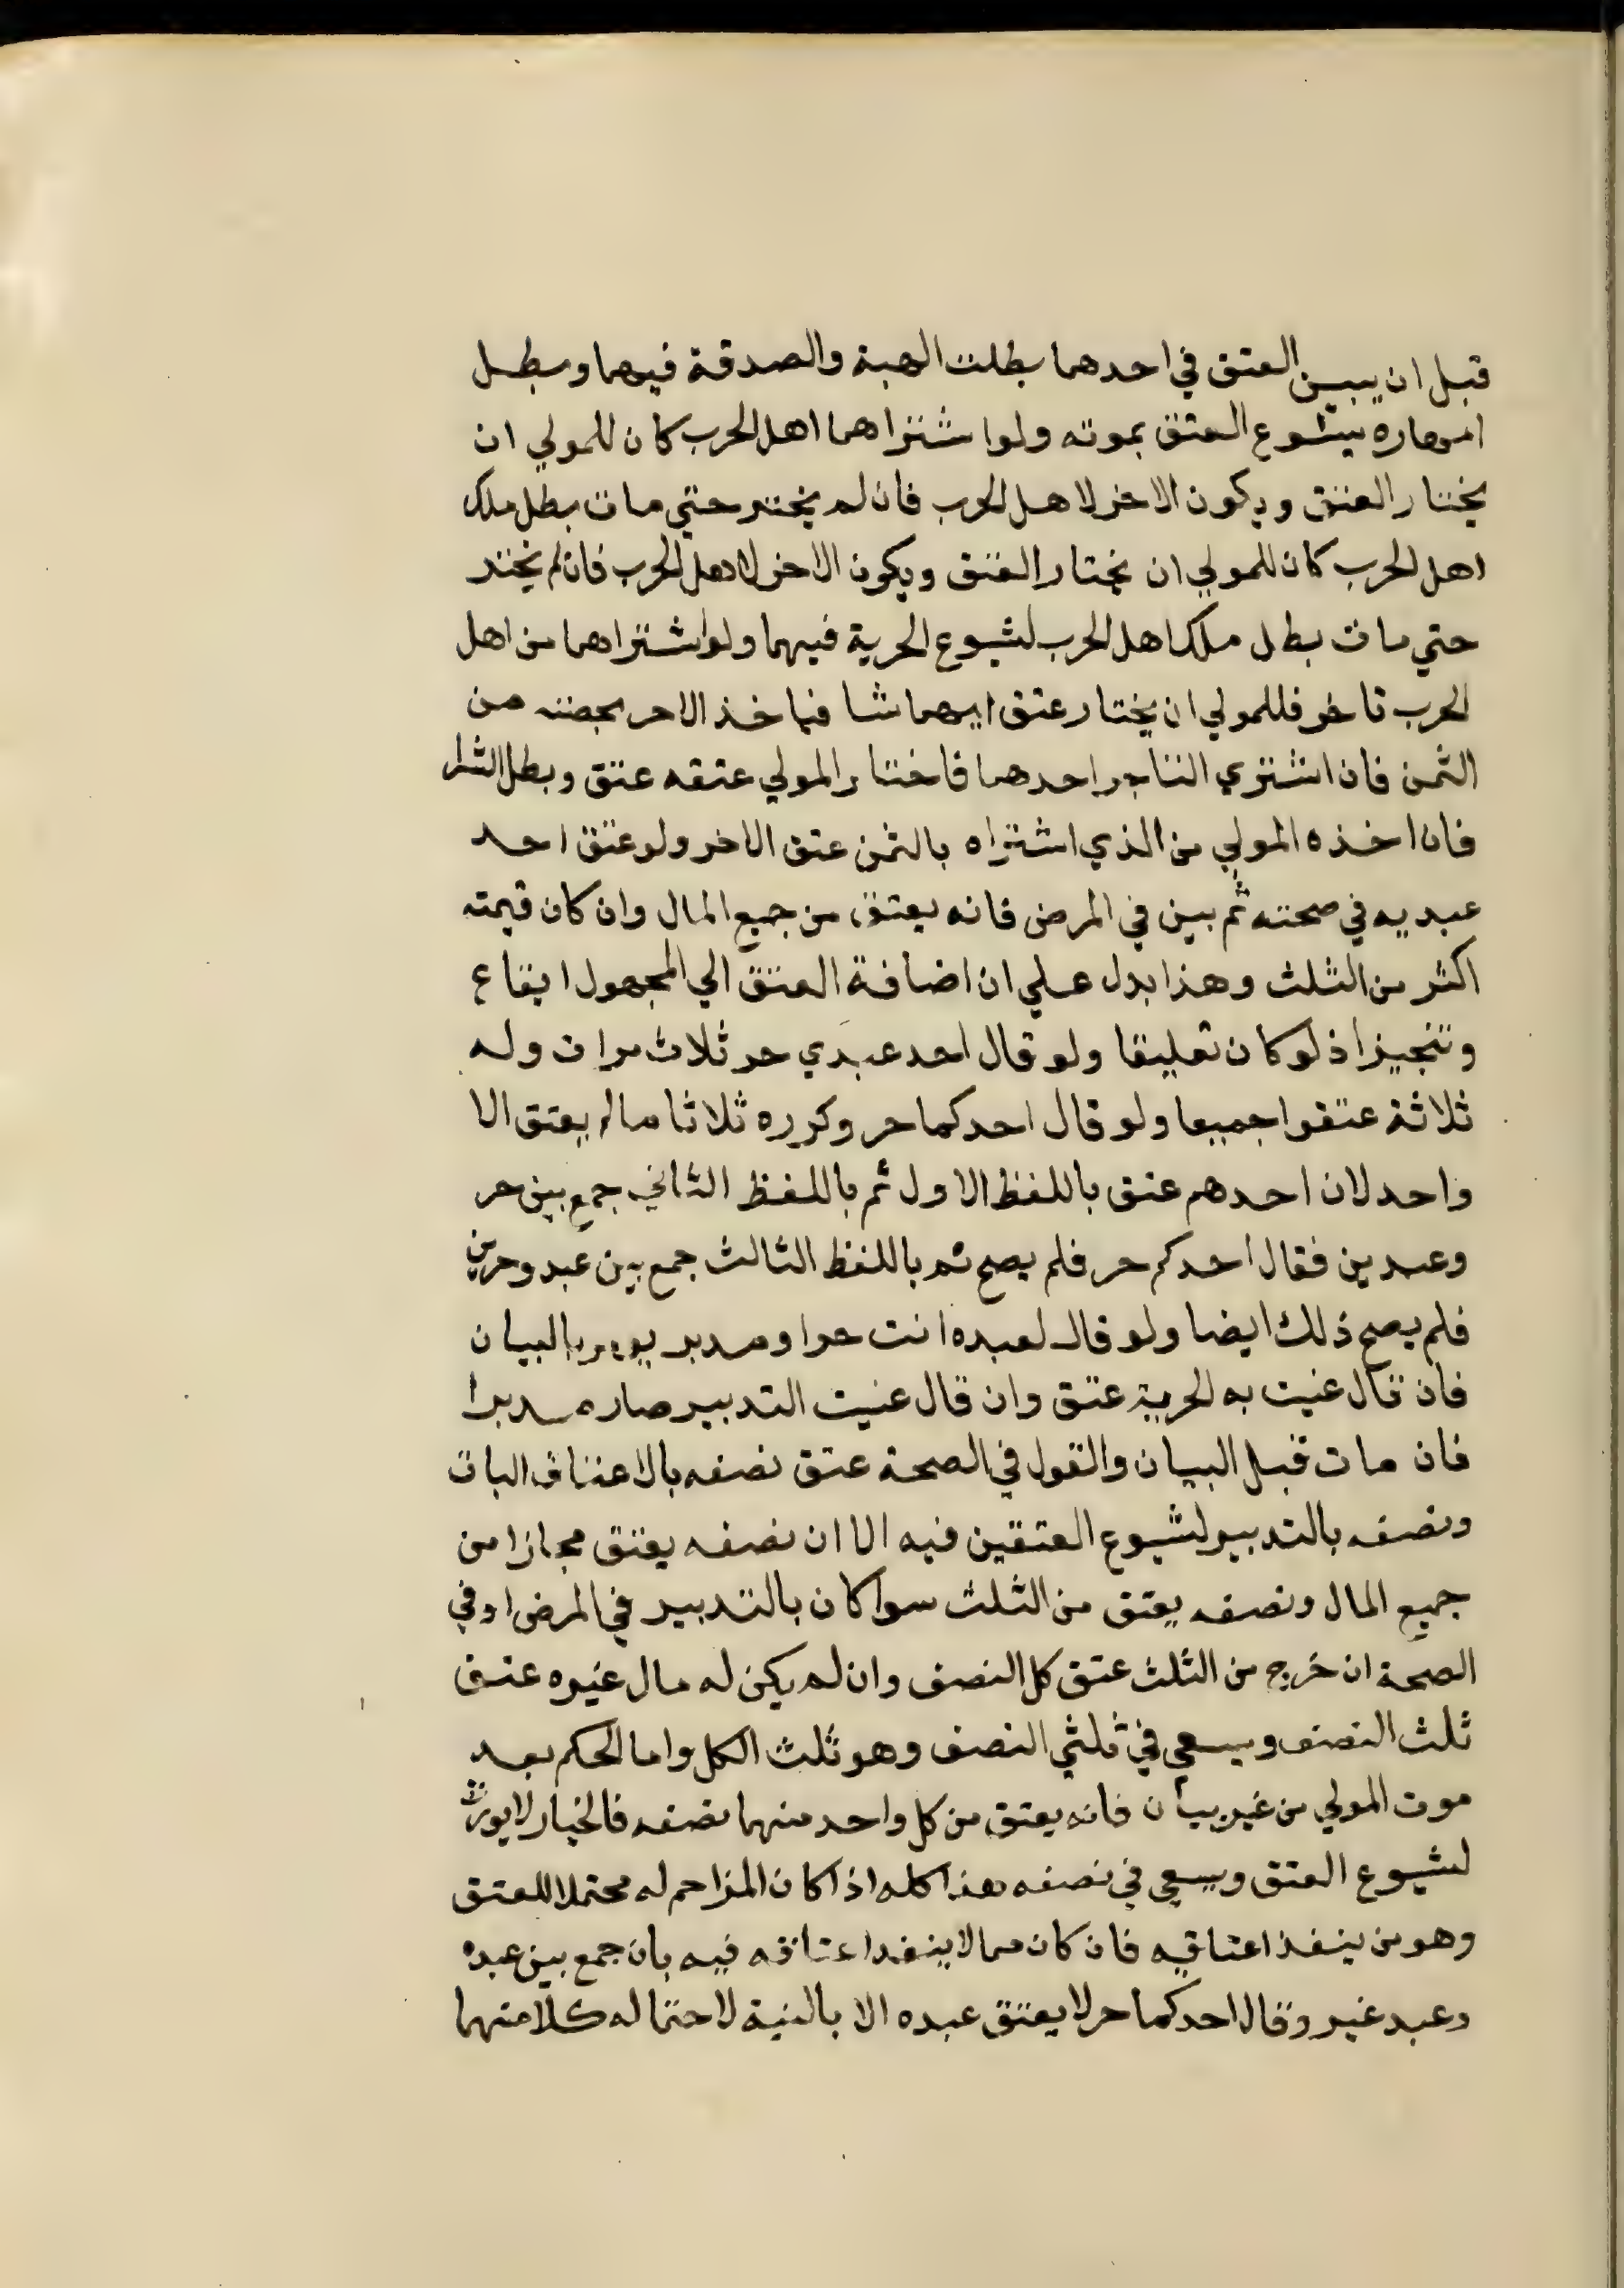 قبل ان يبين العتق في احدهما بطلت الهبة والصدقة فيهما وبطل
امهاره بشيوع العتق بموته ولو اشتراهما اهل الحرب كان للمولي ان
يختار العتق ويكون الاخر لاهل الحرب فان لم يختر حتي مات بطل ملك
اهل الحرب كان للمولي ان يختار العتق ويكون الاخر لاهل الحرب فان لم يختر
حتي مات بطل ملك اهل الحرب لشيوع الحرية فيهما ولو اشتراهما من اهل
الحرب تاجر فللمولي ان يختار عتق ايهما شا فياخذ الاخر بحصته من
الثمن فان اشتري التاجر احدهما فاختار المولي عتقه عتق وبطل الشرا
فان اخذه المولي من الذي اشتراه بالثمن عتق الاخر ولو عتق احد
عبديه في صحته ثم بين في المرض فانه يعتق من جميع المال وان كان قيمته
اكثر من الثلث وهذا يدل علي ان اضافة العتق الي المجهول ايقاع
وتنجيز اذ لو كان تعليقا ولو قال احد عبيدي حر ثلاث مرات وله
ثلاثة عتقوا جميعا ولو قال احدكما حر وكرره ثلاثا لم يعتق الا
واحد لان احدهم عتق باللفظ الاول ثم باللفظ الثاني جمع بين حر
وعبدين فقال احدكم حر فلم يصح ثم باللفظ الثالث جمع بين عبد وحرين
فلم يصح ذلك ايضا ولو قال لعبده انت حر او مدبر يومر بالبيان
فان قال عنيت به الحرية عتق وان قال عنيت التدبير صار مدبرا
فان مات قبل البيان والقول في الصحة عتق نصفه بالاعتاق البات
ونصفه بالتدبير لشيوع العتقين فيه الا ان نصفه يعتق مجانا من
جميع المال ونصفه يعتق من الثلث سوا كان بالتدبير في المرض او في
الصحة ان خرج من الثلث عتق كل النصف وان لم يكن له مال غيره عتق
ثلث النصف ويسعي في ثلثي النصف وهو ثلث الكل واما الحكم بعد
موت المولي من غير بيان فانه يعتق من كل واحد منهما نصفه فالخيار لا يورث
لشيوع العتق ويسعي في نصفه هذا كله اذا كان المزاحم له محتملا للعتق
وهو من ينفذ اعتاقه فان كان مما لا ينفذ اعتاقه فيه بان جمع بين عبده
وعبد غيره وقال احدكما حر لا يعتق عبده الا بالنية لاحتماله كلا منهما